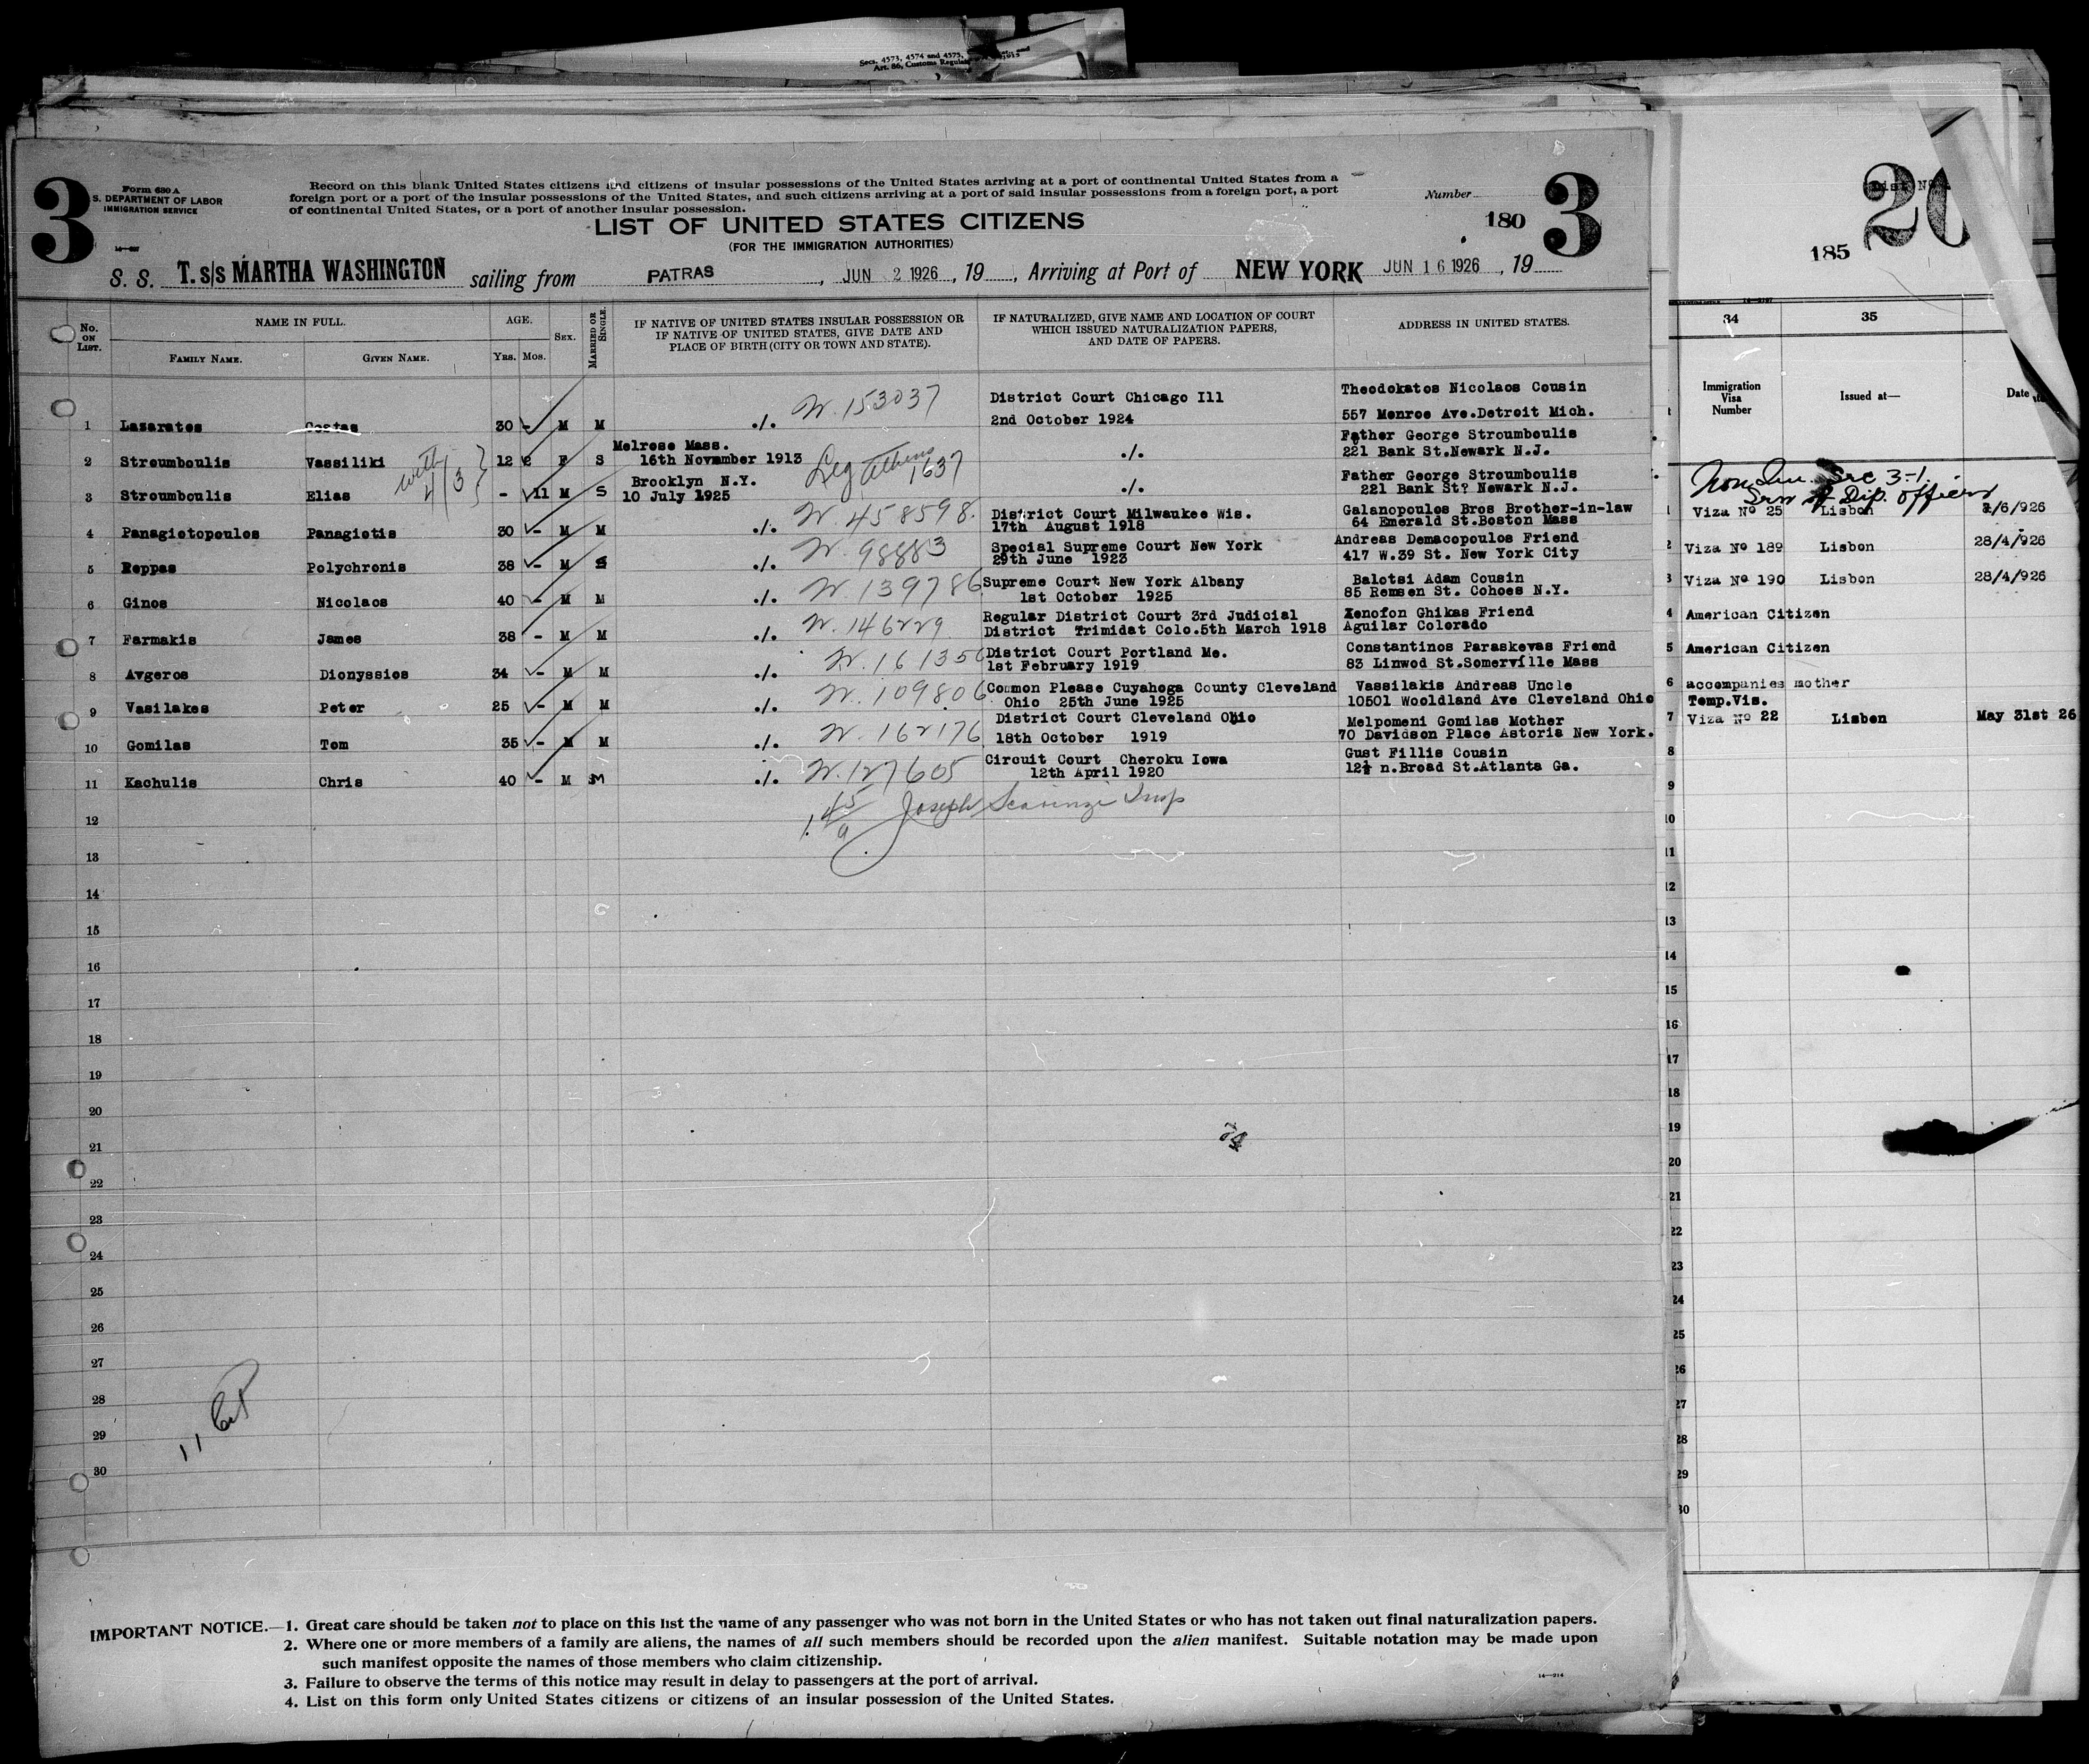 Secs. 4573, 4574 and 4575,
Art. 86, Customs
3
Form 630 A
S. DEPARTMENT OF LABOR
IMMIGRATION SERVICE
Record on this blank United States citizens and citizens of insular possessions of the United States arriving at a port of continental United States from a
foreign port or a port of the insular possessions of the United States, and such citizens arriving at a port of said insular possessions from a foreign port, a port
of continental United States, or a port of another insular possession.
Number
180
3
LIST OF UNITED STATES CITIZENS
(FOR THE IMMIGRATION AUTHORITIES)
S. S. T. s/s MARTHA WASHINGTON sailing from PATRAS, JUN 2 1926, 19, Arriving at Port of NEW YORK JUN 16 1926, 19
No. ON LIST.
NAME IN FULL.
FAMILY NAME. GIVEN NAME.
AGE.
Yrs. Mos.
SEX.
MARRIED OR SINGLE.
IF NATIVE OF UNITED STATES INSULAR POSSESSION OR
IF NATIVE OF UNITED STATES, GIVE DATE AND
PLACE OF BIRTH (CITY OR TOWN AND STATE).
IF NATURALIZED, GIVE NAME AND LOCATION OF COURT
WHICH ISSUED NATURALIZATION PAPERS,
AND DATE OF PAPERS.
ADDRESS IN UNITED STATES.
District Court Chicago Ill Theodokatos Nicolaos Cousin
1 Lazaratos Costas 30 - M M ./. W. 153037 2nd October 1924 557 Monroe Ave.Detroit Mich.
Melrose Mass. Father George Stroumboulis
2 Stroumboulis Vassiliki 12 2 F S 16th November 1913 Leg Athens 1637 ./. 221 Bank St.Newark N.J.
with 4/3
Brooklyn N.Y. Father George Stroumboulis
3 Stroumboulis Elias - 11 M S 10 July 1925 ./. 221 Bank St? Newark N.J.
District Court Milwaukee Wis. Galanopoulos Bros Brother-in-law
4 Panagiotopoulos Panagiotis 30 - M M ./. W. 458598. 17th August 1918 64 Emerald St.Boston Mass
Special Supreme Court New York Andreas Demacopoulos Friend
5 Reppas Polychronis 38 - M S ./. W. 98883 29th June 1923 417 W.39 St. New York City
Supreme Court New York Albany Balotsi Adam Cousin
6 Ginos Nicolaos 40 - M M ./. W. 139786 1st October 1925 85 Remsen St. Cohoes N.Y.
Regular District Court 3rd Judicial Xenofon Ghikas Friend
7 Farmakis James 38 - M M ./. W. 146229 District Trimidat Colo.5th March 1918 Aguilar Colorado
District Court Portland Me. Constantinos Paraskevas Friend
8 Avgeros Dionyssios 34 - M M ./. W. 161356 1st February 1919 83 Linwod St.Somerville Mass
Common Please Cuyahoga County Cleveland Vassilakis Andreas Uncle
9 Vasilakes Peter 25 - M M ./. W. 109806 Ohio 25th June 1925 10501 Wooldland Ave Cleveland Ohio
District Court Cleveland Ohio Melpomeni Gomilas Mother
10 Gomilas Tom 35 - M M ./. W. 162176 18th October 1919 70 Davidson Place Astoria New York.
Circuit Court Cheroku Iowa Gust Fillis Cousin
11 Kachulis Chris 40 - M M ./. W. 127605 12th April 1920 12½ n.Broad St.Atlanta Ga.
Joseph Scaringi Insp
12
13
14
15
16
17
18
19
20
21
22
23
24
25
26
27
28
29
30
IMPORTANT NOTICE.—1. Great care should be taken not to place on this list the name of any passenger who was not born in the United States or who has not taken out final naturalization papers.
2. Where one or more members of a family are aliens, the names of all such members should be recorded upon the alien manifest. Suitable notation may be made upon
such manifest opposite the names of those members who claim citizenship.
3. Failure to observe the terms of this notice may result in delay to passengers at the port of arrival.
4. List on this form only United States citizens or citizens of an insular possession of the United States.
14—914
185
20
34 35
Immigration Visa Number
Issued at—
Date
Non Im. Sec 3-1.
Serv of Dip. Officers
1 Viza No 25 Lisbon 2/6/926
2 Viza No 189 Lisbon 28/4/926
3 Viza No 190 Lisbon 28/4/926
4 American Citizen
5 American Citizen
6 accompanies mother
Temp.Vis.
7 Viza No 22 Lisbon May 31st 26
8
9
10
11
12
13
14
15
16
17
18
19
20
21
22
23
24
25
26
27
28
29
30